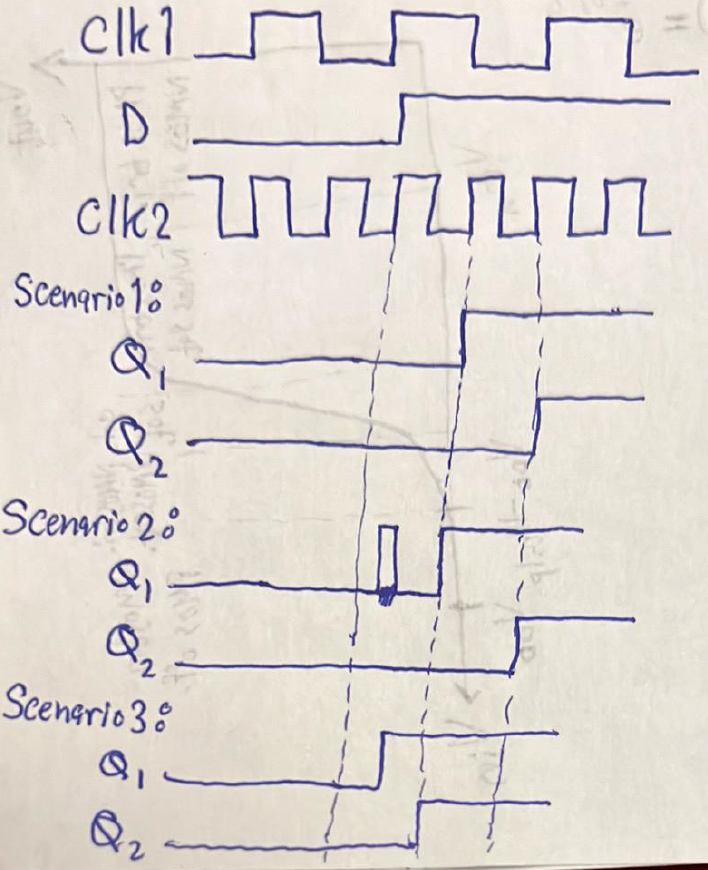 Clk1
D
Clk2
Scenario1:
Q1
Q2
Scenario2:
Q1
Q2
Scenario3:
Q1
Q2